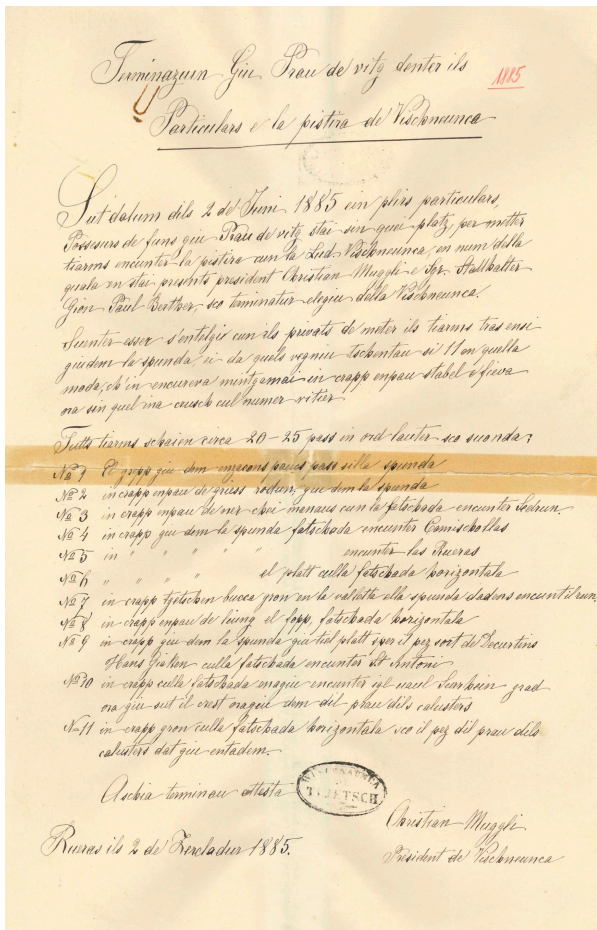 Terminaziun Giu Prau de vitg denter ils
1885
Particulars e la pistira de Vischneunca
Sut datum dils 2 de Juni 1885 ein plirs particulars,
Possesurs de funs giu Prau de vitg stai sin quei platz, per metter
tiarms encunter la pistira cun la Lud. Vischneunca, en num della
quala ein stai presents president Christian Muggli e Sgr. Stathalter
Gion Paul Berther, sco terminatur elegiu della Vischneunca.
Suenter esser s'entelgi cun ils privats de meter ils tiarms tras ensi
giudem la spunda ei da quels vegniu tschentau si 11 en quella
moda, ch'in encureva mintgamai in crapp enpau stabel e fieva
ora sin quel ina crusch cul numer vitier.
Tutts tiarms schaien circa 20-25 pass in ord lauter sco suonda:
No 1 El grepp giu dem enzacons paucs pass silla spunda
No 2 in crapp enpau de gruss rodun, giu dem la spunda
No 3 in crapp enpau de ner chei manaus cun la fatschada encunter Sedrun
No 4 in crapp giu dem la spunda fatschada encunter Camischollas
No 5 in " " " " " encunter las Rueras
No 6 " " " " el platt culla fatschada horizontala
No 7 in crapp tgietschen bucca gron en la valletta ella spunda dadens encunt il run.
No 8 in crapp enpau de liung el fopp, fatschada horizontala
No 9 in crapp giu dem la spunda giu tiel platt sper il pez sort de Decurtins
Hans Giaken culla fatschada encunter St Antoni
No 10 in crapp culla fatschada enagiu encunter igl uaul Scarhoin grad
ora giu sut il crest oragiu dem dil prau dils calusters
No 11 in crapp gron culla fatschada horizontala sco il pez dil prau dels
calusters dat giu entadem.
Aschia terminau attesta
VISCHNAUNCA
TUJETSCH
Christian Muggli
Rueras ils 2 de Zercladur 1885.
President de Vischneunca